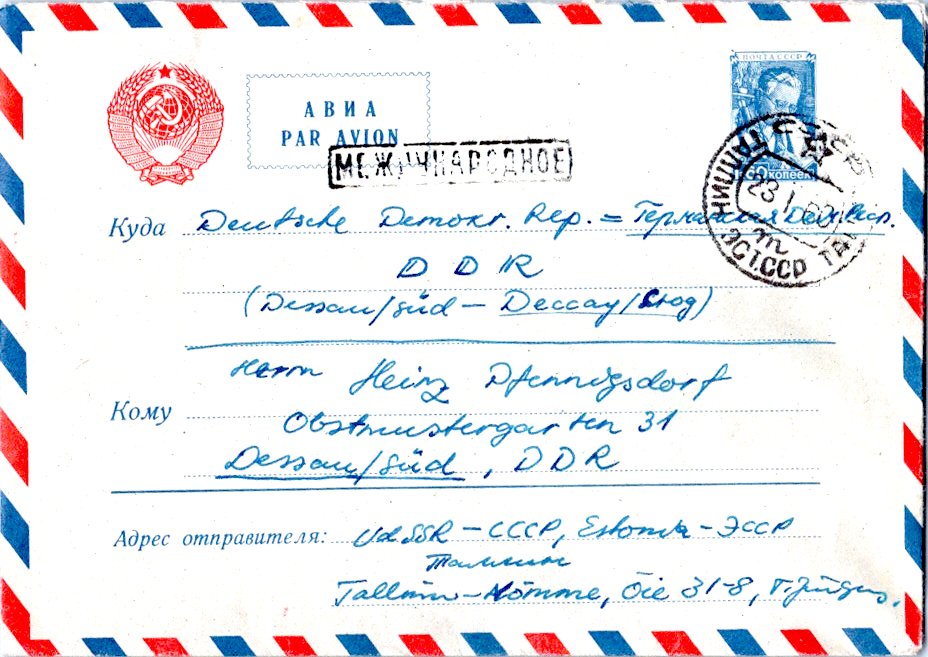 ПОЧТА СССР
АВИА
PAR AVION
МЕЖДУНАРОДНОЕ
КОПЕЕК
ТАЛЛИН
23 1
ЭСТ.ССР
Куда Deutsche Demokr. Rep. = Германская Дем. Респ.
DDR
(Dessau/Süd – Дессау/Сюд)
Кому Herrn Heinz Pfennigsdorf
Obstmustergarten 31
Dessau/Süd, DDR
Адрес отправителя: UdSSR – СССР, Estonia – ЭССР
Таллин
Tallinn-Nõmme, Õie 31-8,